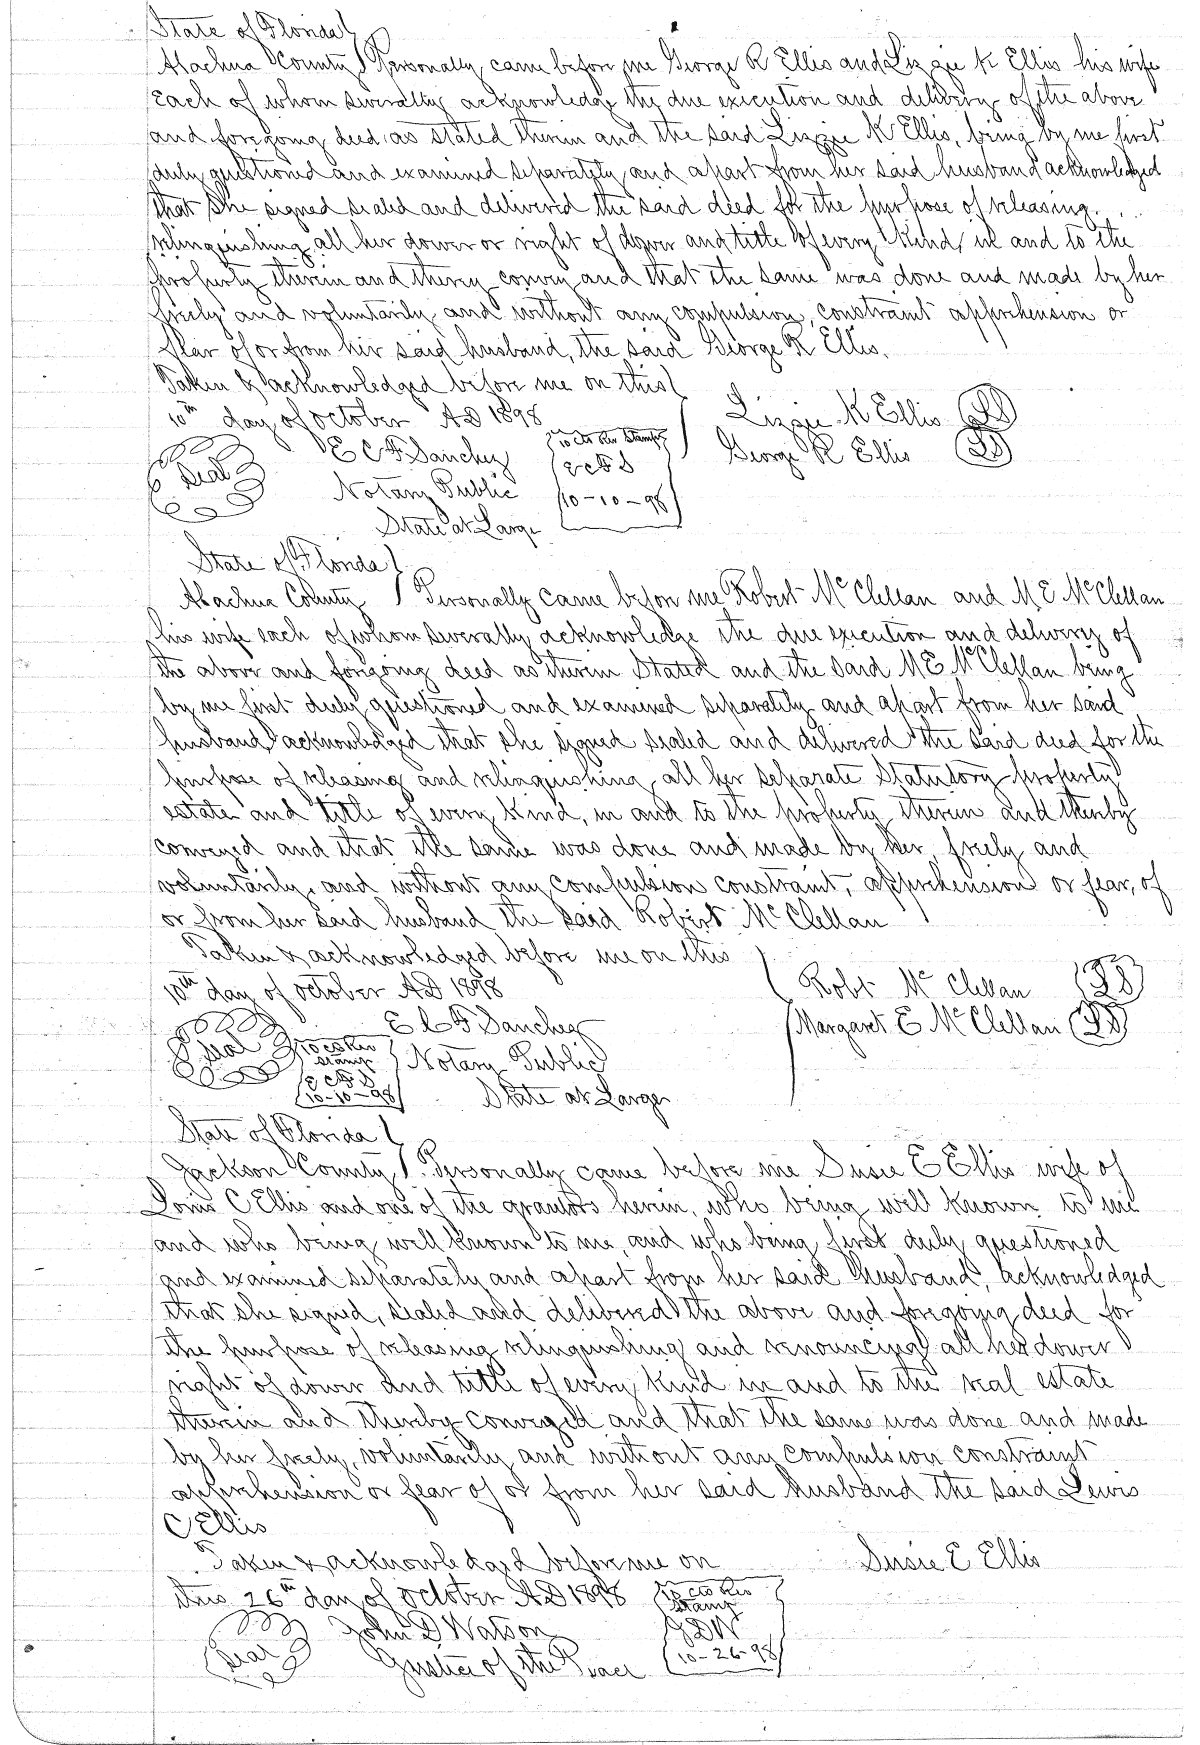 State of Florida }
Alachua County } Personally came before me George R Ellis and Lizzie K Ellis his wife
Each of whom severally acknowledge the due execution and delivery of the above
and foregoing deed as stated therein and the said Lizzie K Ellis, being by me first
duly questioned and examined separately and apart from her said husband acknowledged
that she signed sealed and delivered the said deed for the purpose of releasing
relinquishing all her dower or right of dower and title of every kind, in and to the
property therein and therey convey and that the same was done and made by her
freely and voluntarily and without any compulsion, constraint apprehension or
fear of or from her said husband, the said George R Ellis.
Taken & acknowledged before me on this }
10th day of October AD 1898
Lizzie K Ellis (LS)
George R Ellis (LS)
Seal
E C F Sanchez
Notary Public
State at Large
10 cts Rev Stamp
E C F S
10-10-98
State of Florida }
Alachua County } Personally came before me Robert McClellan and M E McClellan
his wife each of whom severally acknowledge the due execution and delivery of
the above and forgoing deed as therein Stated and the said M E McClellan being
by me first duly questioned and examined separately and apart from her said
husband, acknowledged that she signed sealed and delivered the said deed for the
purpose of releasing and relinquishing all her separate Statutory property
estate and title of every kind, in and to the property therein and thereby
conveyed and that the same was done and made by her, freely and
voluntarily, and without any compulsion constraint, apprehension or fear, of
or from her said husband the said Robert McClellan
Taken & acknowledged before me on this
10th day of October AD 1898
Robt McClellan (LS)
Margaret E McClellan (LS)
Seal
E C F Sanchez
Notary Public
State at Large
10 cts Rev
Stamp
E C F S
10-10-98
State of Florida }
Jackson County } Personally came before me Susie E Ellis wife of
Louis C Ellis and one of the grantors herein, who being well known to me
and who being well known to me, and who being first duly questioned
and examined separately and apart from her said husband, acknowledged
that she signed, sealed and delivered the above and foregoing deed for
the purpose of releasing relinquishing and renouncing all her dower
right of dower and title of every kind in and to the real estate
therein and thereby conveyed and that the same was done and made
by her freely, voluntarily and without any compulsion constraint
apprehension or fear of or from her said husband the said Lewis
C Ellis
Taken & acknowledged before me on
this 26th day of October AD 1898
Susie E Ellis
Seal
John D Watson
Justice of the Peace
10 cts Rev
Stamp
JDW
10-26-98